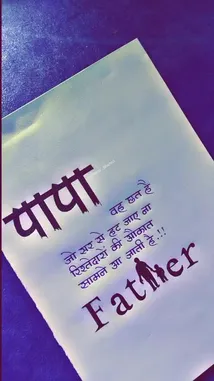 पापा
वह छत है
जो सर से हट जाए ना
रिश्तेदारों की औकात
सामने आ जाती है.!!
Father